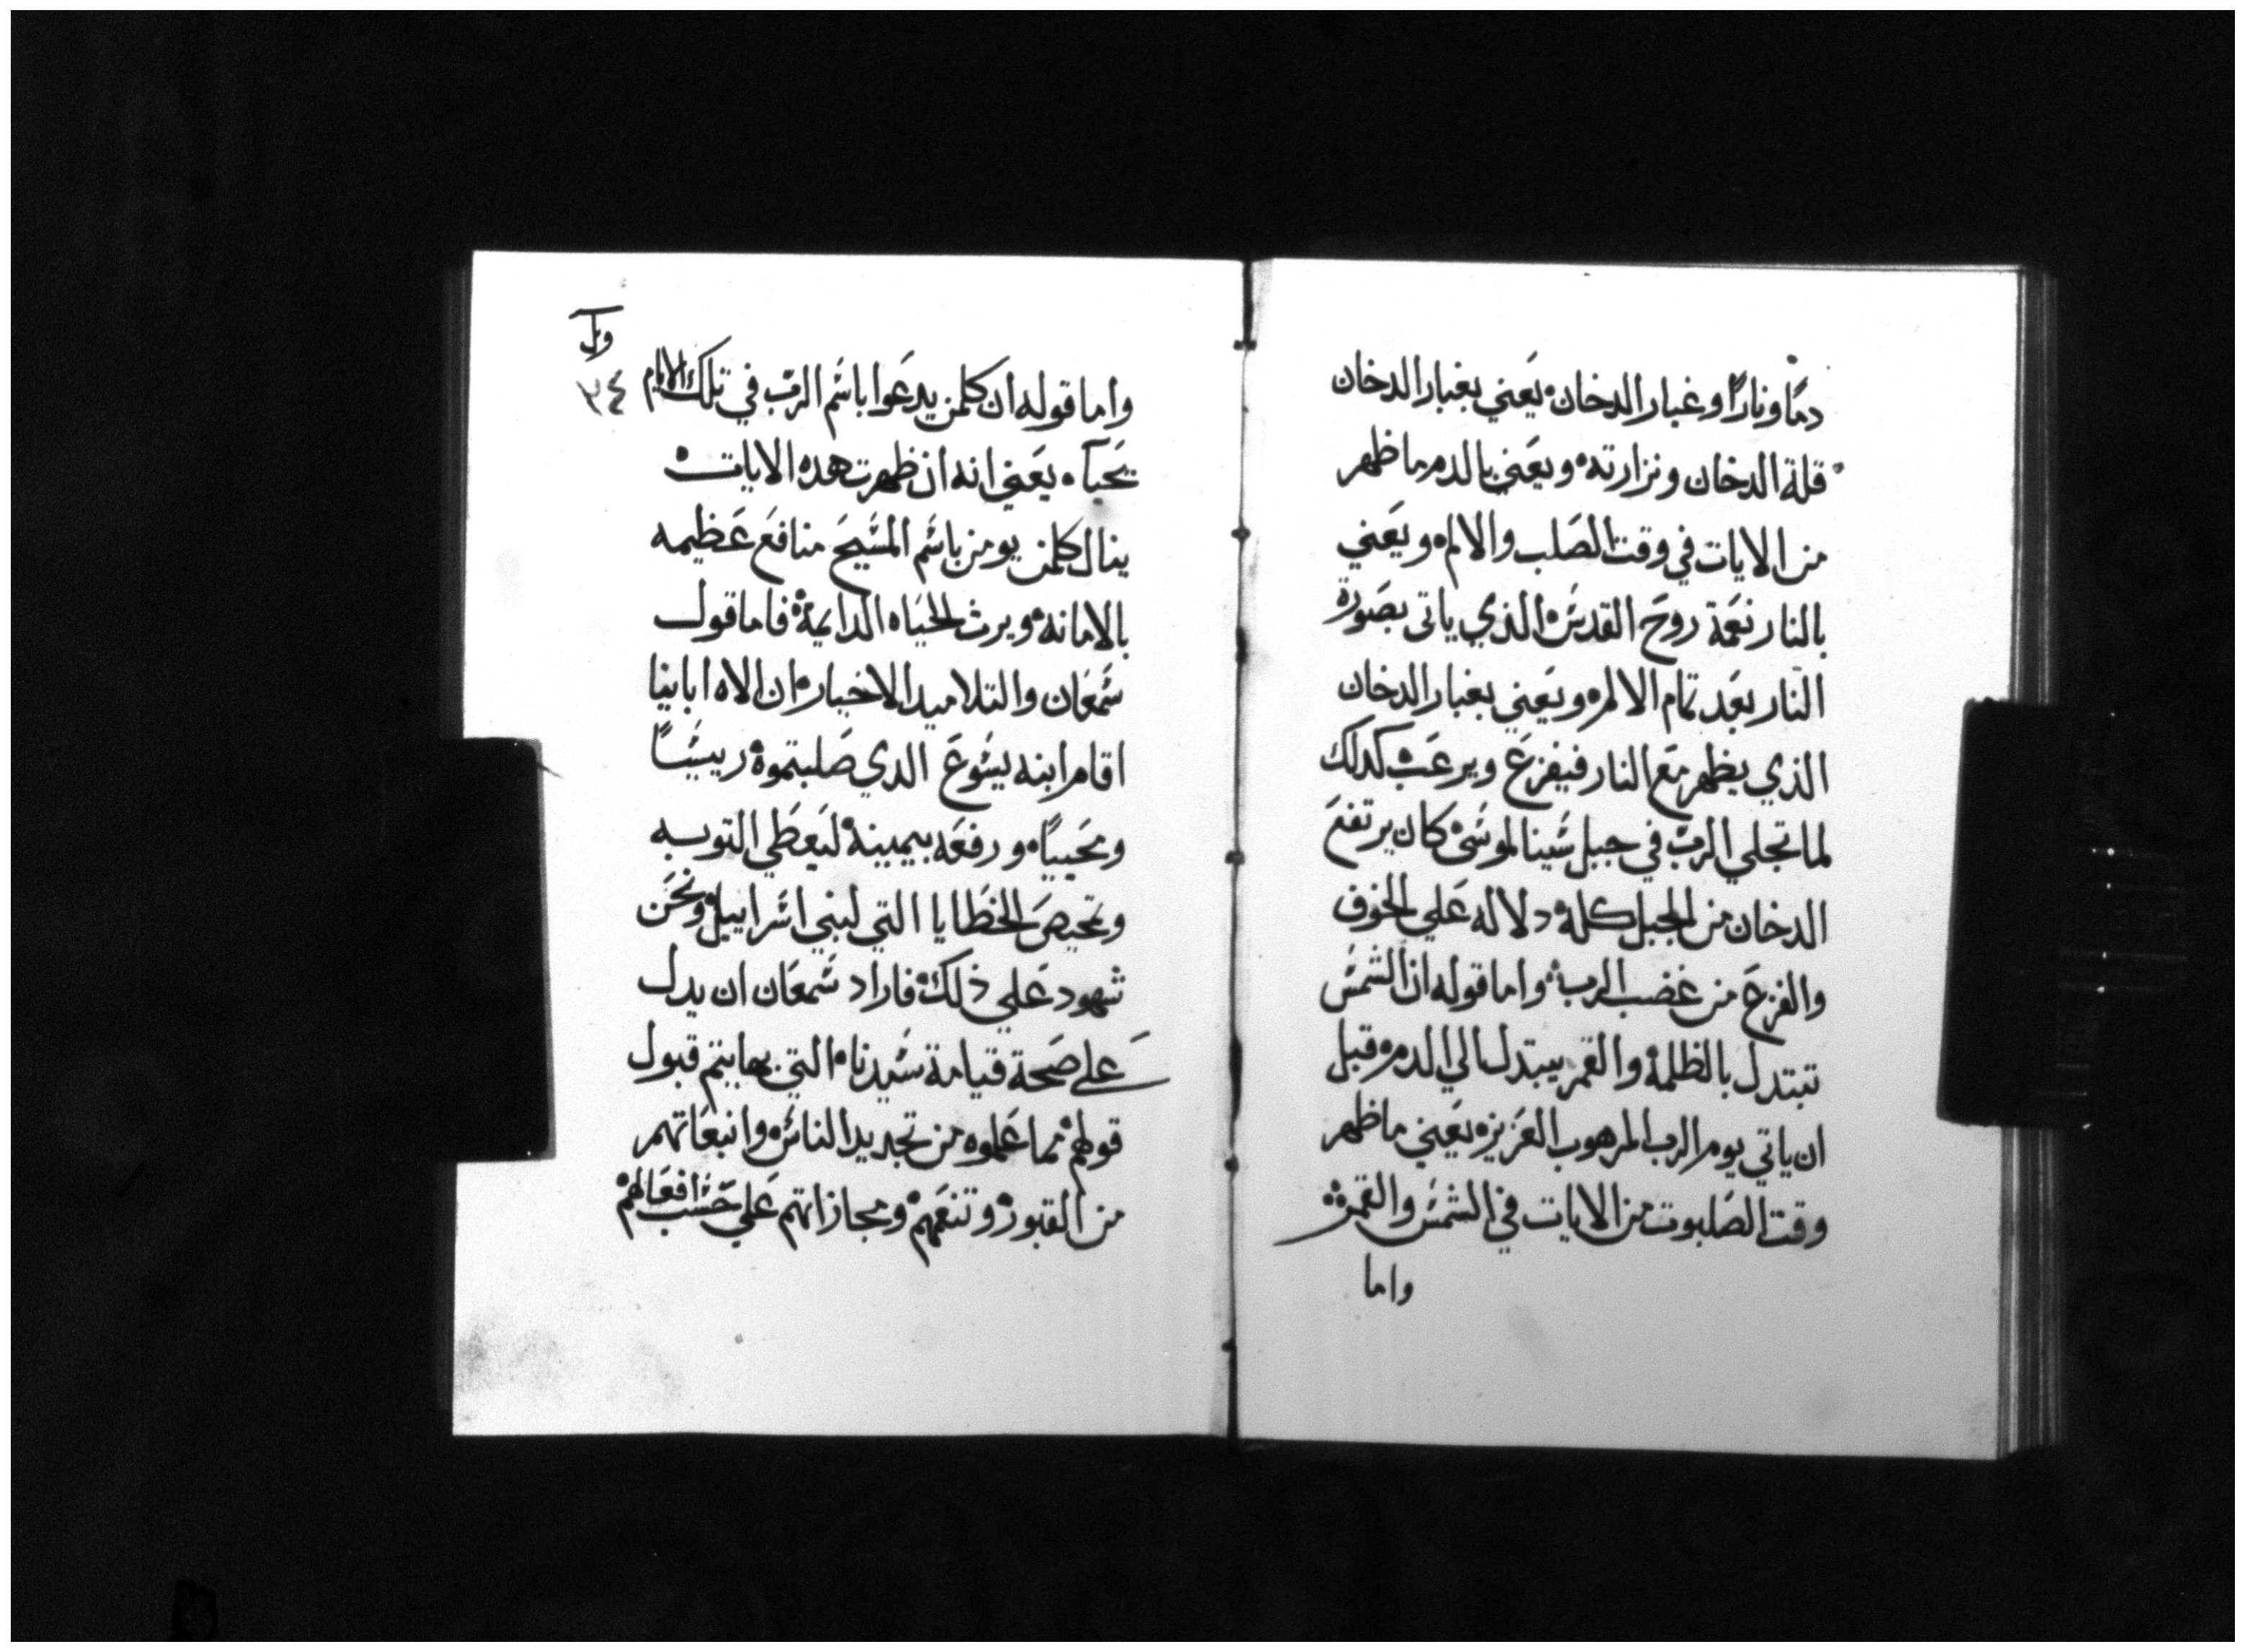 دمًا ونارًا وغبار الدخان ه يعني بغبار الدخان
قلة الدخان ونزارته ه ويعني بالدم ما ظهر
من الايات في وقت الصلب والالم ه ويعني
بالنار نعمة روح القدس ه الذي ياتي بصورة
النار بعد تمام الالم ه ويعني بغبار الدخان
الذي يظهر مع النار فيفزع ويرعب كدلك
لما تجلي الرب في جبل سينا لموسى ه كان يرتفع
الدخان من الجبل كله ه دلاله علي الخوف
والفزع من غضب الرب ه واما قوله ان الشمس
تبتدل بالظلمه والقمر يبتدل الي الدم ه قبل
ان ياتي يوم الرب المرهوب العزيز ه يعني ما ظهر
وقت الصلبوت من الايات في الشمس والقمر ه
واما
٣٤
واما قوله ان كلمن يدعوا باسم الرب في تلك الايام
يحيا ه يعني انه ان ظهرت هده الايات ه
ينال كلمن يومن باسم المسيح منافع عظيمه
بالامانه ه ويرث الحياه الدايمة ه فاما قول
سمعان والتلاميد الاخيار ه ان الاه ابابينا
اقام ابنه يسوع الدي صلبتموه ريسًا
ومحييًا ه ورفعه بيمينه ليعطي التوبه
وتمحيص الخطايا التي لبني اسراييل ه ونحن
شهود علي ذلك ه فاراد سمعان ان يدل
علي صحة قيامة سيدنا ه التي بها يتم قبول
قولهم مما عملوه من تجديد الناس ه وانبعاتهم
من القبور ه وتنعمهم ه ومجازاتهم علي حسب افعالهم ه